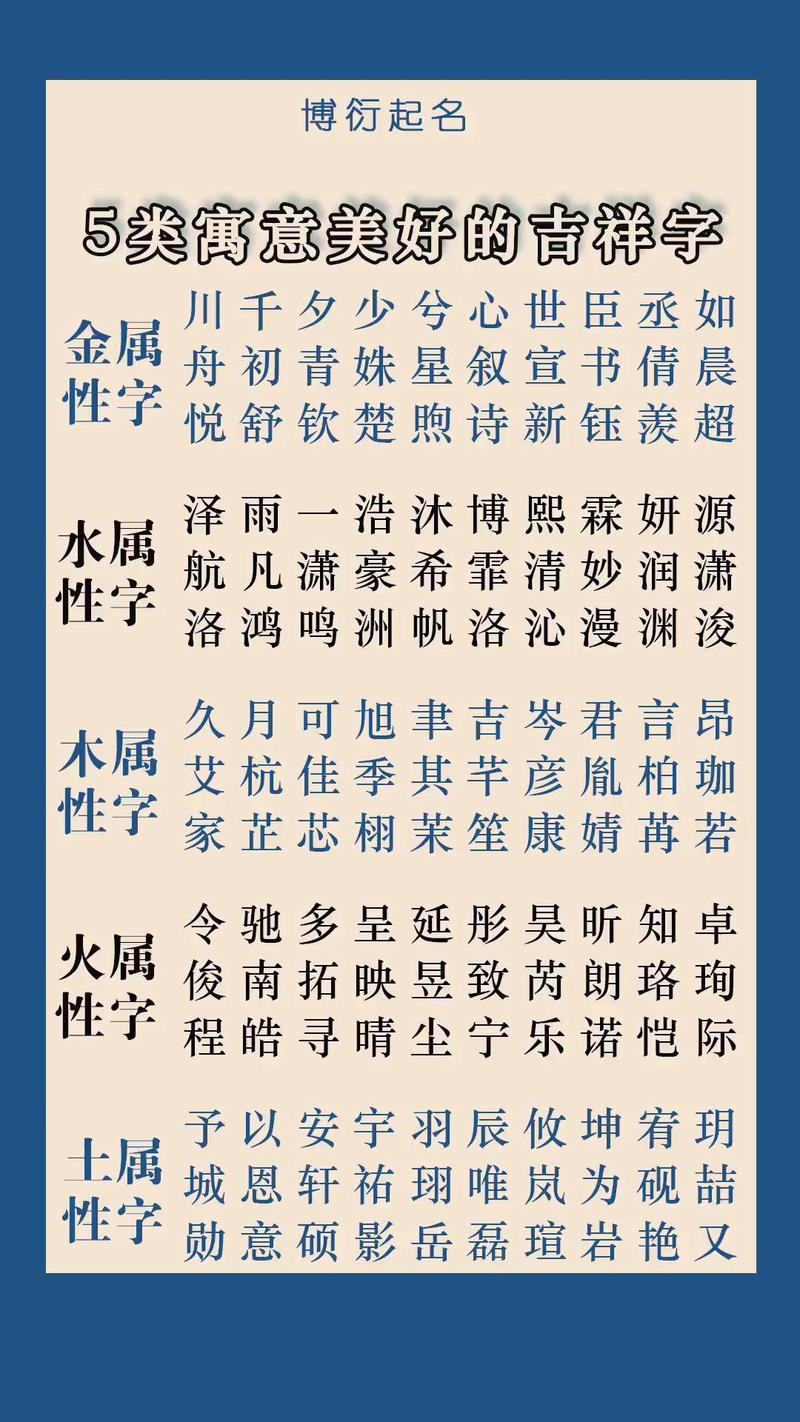 博衍起名
5类寓意美好的吉祥字
金属性字
川千夕少兮心世臣丞如
舟初青姝星叙宣书倩晨
悦舒钦楚煦诗新钰羡超
水属性字
泽雨一浩沐博熙霖妍源
航凡潇豪希霏清妙润潇
洛鸿鸣洲帆洛沁漫渊浚
木属性字
久月可旭聿吉岑君言昂
艾杭佳季其芊彦胤柏珈
家芷芯栩茉笙康婧苒若
火属性字
令驰多呈延彤昊昕知卓
俊南拓映昱致芮朗珞珣
程皓寻晴尘宁乐诺恺际
土属性字
予以安宇羽辰攸坤宥玥
城恩轩祐珝唯岚为砚喆
勋意硕影岳磊瑄岩艳又